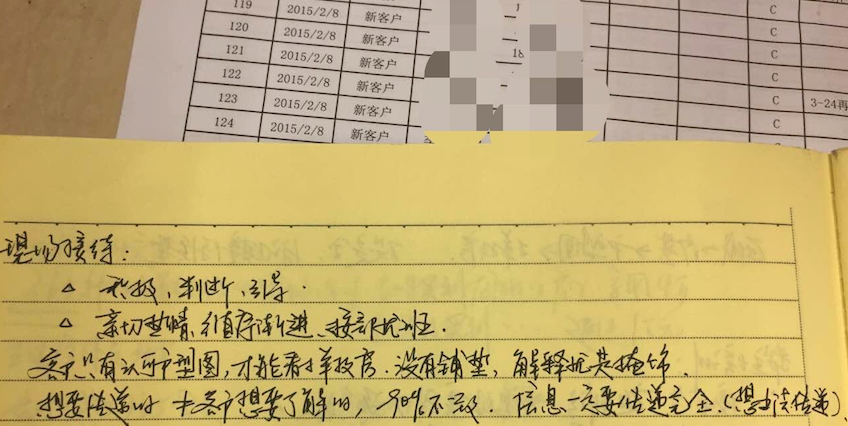 119 2015/2/8 新客户 C
120 2015/2/8 新客户 C
121 2015/2/8 新客户 18 C
122 2015/2/8 新客户 C
123 2015/2/8 新客户 C 3-24再
124 2015/2/8 新客户 C
现场接待:
△ 积极,判断,引导.
△ 亲切热情,循序渐进、按部就班.
客户只有认可户型图,才能看样板房.没有铺垫,解释就是掩饰.
想要传递的 与客户想要了解的, 90%不一致. 信息一定要传递完全.(想办法传递)